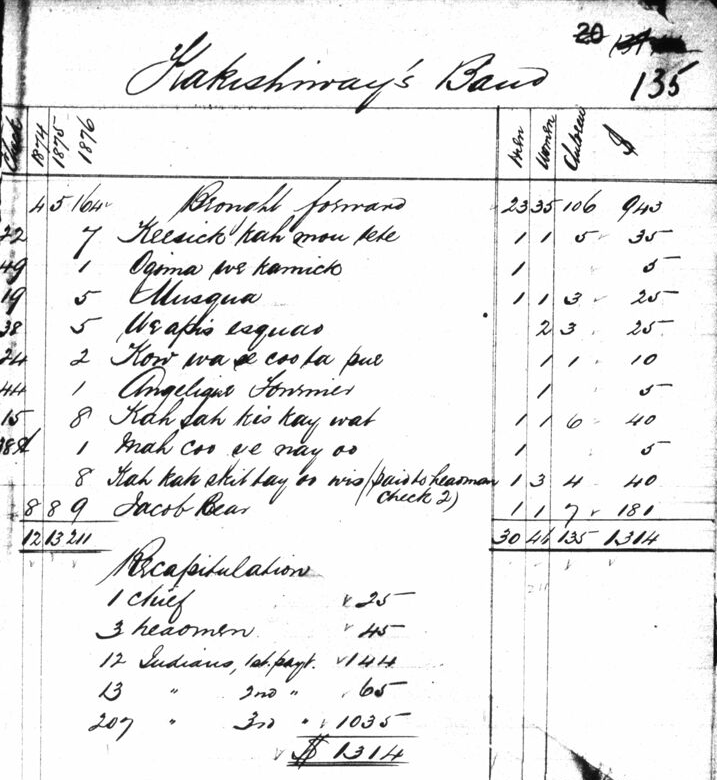 20
Kakishiway's Band 135
1874 1875 1876 Men Women Children $
4 5 164 Brought forward 23 35 106 943
22 7 Keesick kah mou tete 1 1 5 35
49 1 Ogima we kamick 1 5
19 5 Musqua 1 1 3 25
38 5 Weapis esquao 2 3 25
24 2 Kow wa se coo ta pue 1 1 10
44 1 Angelique 1 5
15 8 Kah sah kis kay wat 1 1 6 40
1 Mah coo se nay oo 1 5
8 Kah kah skit tay oo wis (paid to headman 1 3 4 40
check 2)
8 8 9 Jacob Bear 1 1 7 181
12 13 211 30 46 135 1314
Recapitulation
1 chief 25
3 headmen 45
12 Indians, 1st. payt. 144
13 " 2nd " 65
207 " 3rd " 1035
$ 1314